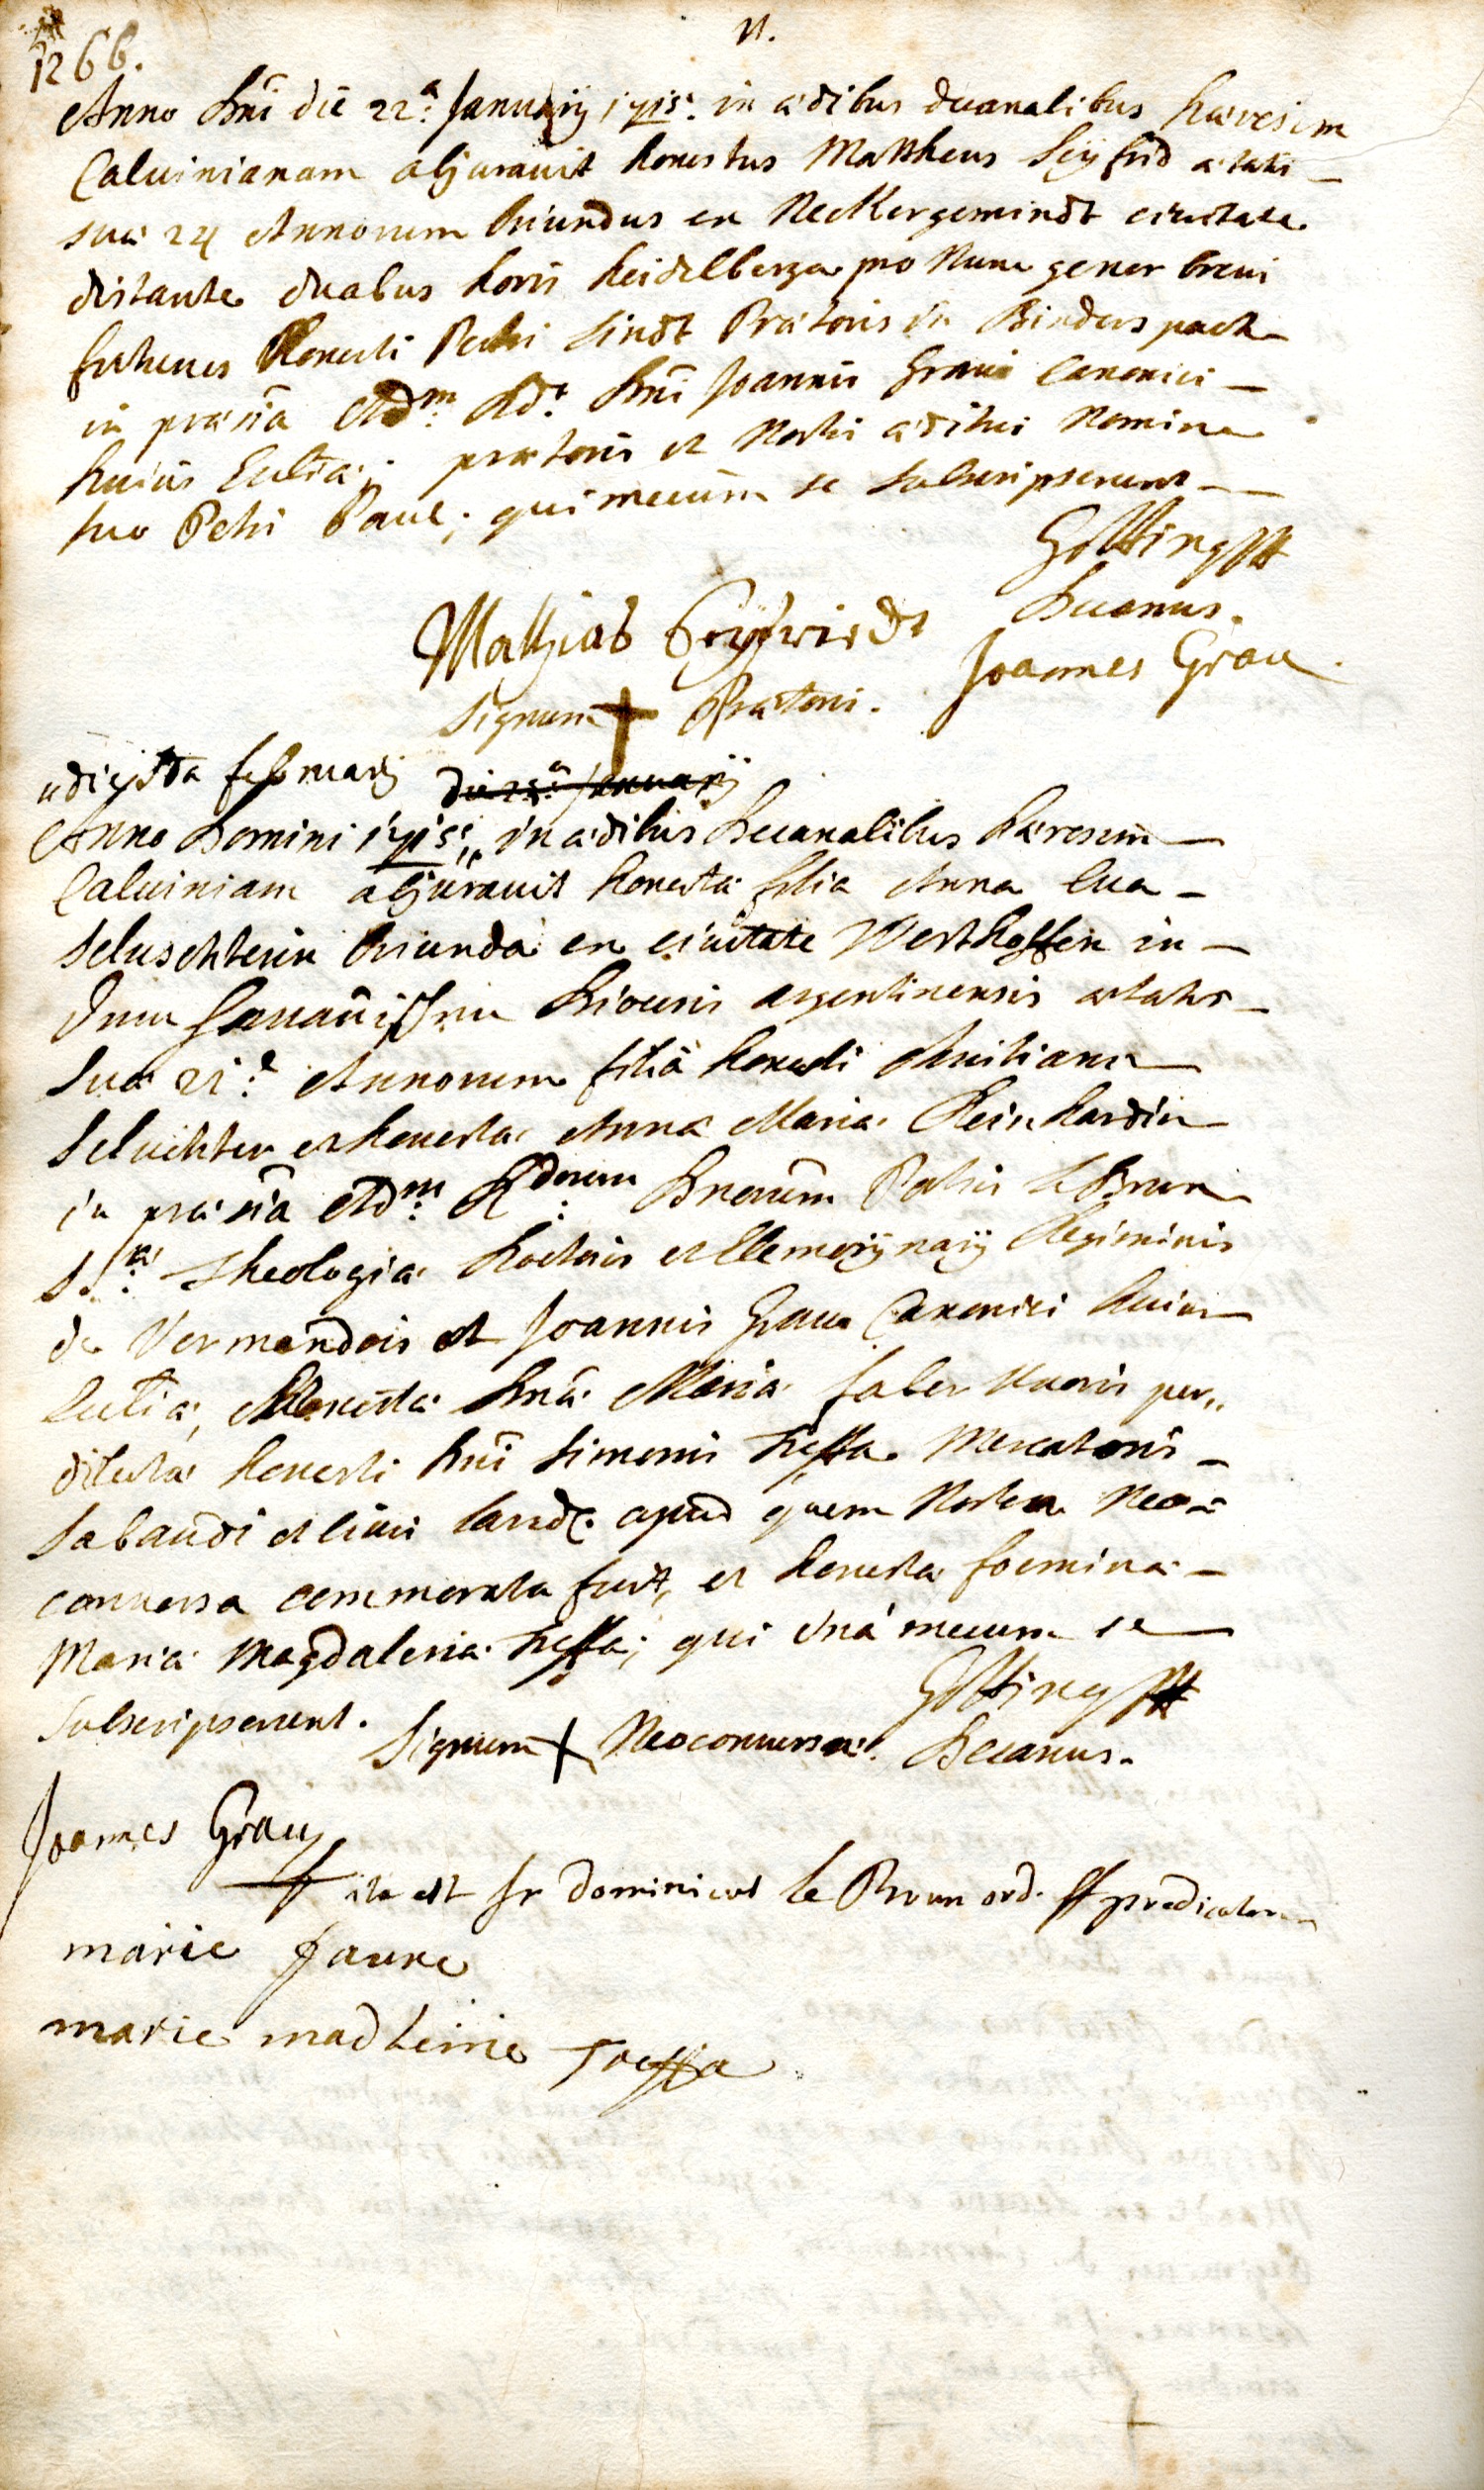 N.
1266.
Anno Dni die 22a Januarij 1715. in ædibus decanalibus hæresim
Calvinianam abjuravit honestus Mattheus Seyfrid ætatis
suæ 24 Annorum oriundus ex Neckergemindt civitate
distante duabus horis Heidelberga pro Nunc gener brevi
futurus Honesti Petri Lindt Prætoris in Binderspach
in præsia Adm. Rdi Dni Joannis Grau Canonici
huius Ecclia; prætoris et Nostri æditui Nomine
suo Petri Paul; qui mecum se subscripserunt
Gotting
Decanus.
Mathias Seyfriedt
Joannes Grau
Signum + Prætoris.
februarij die 25a Januarij
Anno Domini 1715. in ædibus Decanalibus hæresim
Calviniam abjuravit honesta filia Anna Eva
Schuschterin oriunda ex civitate Westhoffen in
Diœcesis argentinensis ætatis
suæ 21 Annorum filia honesti Christiani
Schuchter et honesta Anna Maria Reinhardin
in præsia Adm. Rdorum Dnorum Patris le Brun
SSæ Theologiæ Doctoris et Elemosijnarij Regiminis
de Vermandois et Joannis Grau Canonici huius
Ecclia, Honesta Dna Maria faber uxoris per,,
dilecta honesti Dni Simonis Treffa Mercatoris
Sabaudi et civis Land. apud quem Nostra Neo-
conversa commorata fuit, et honesta foemina
Maria Magdalena Treffa; qui una mecum se
subscripserunt.
Gotting
Signum + Neoconversæ. Decanus.
Joannes Grau
ita est fr dominicus le Brun ord. ff predicatorum
marie faure
marie madleine Treffa